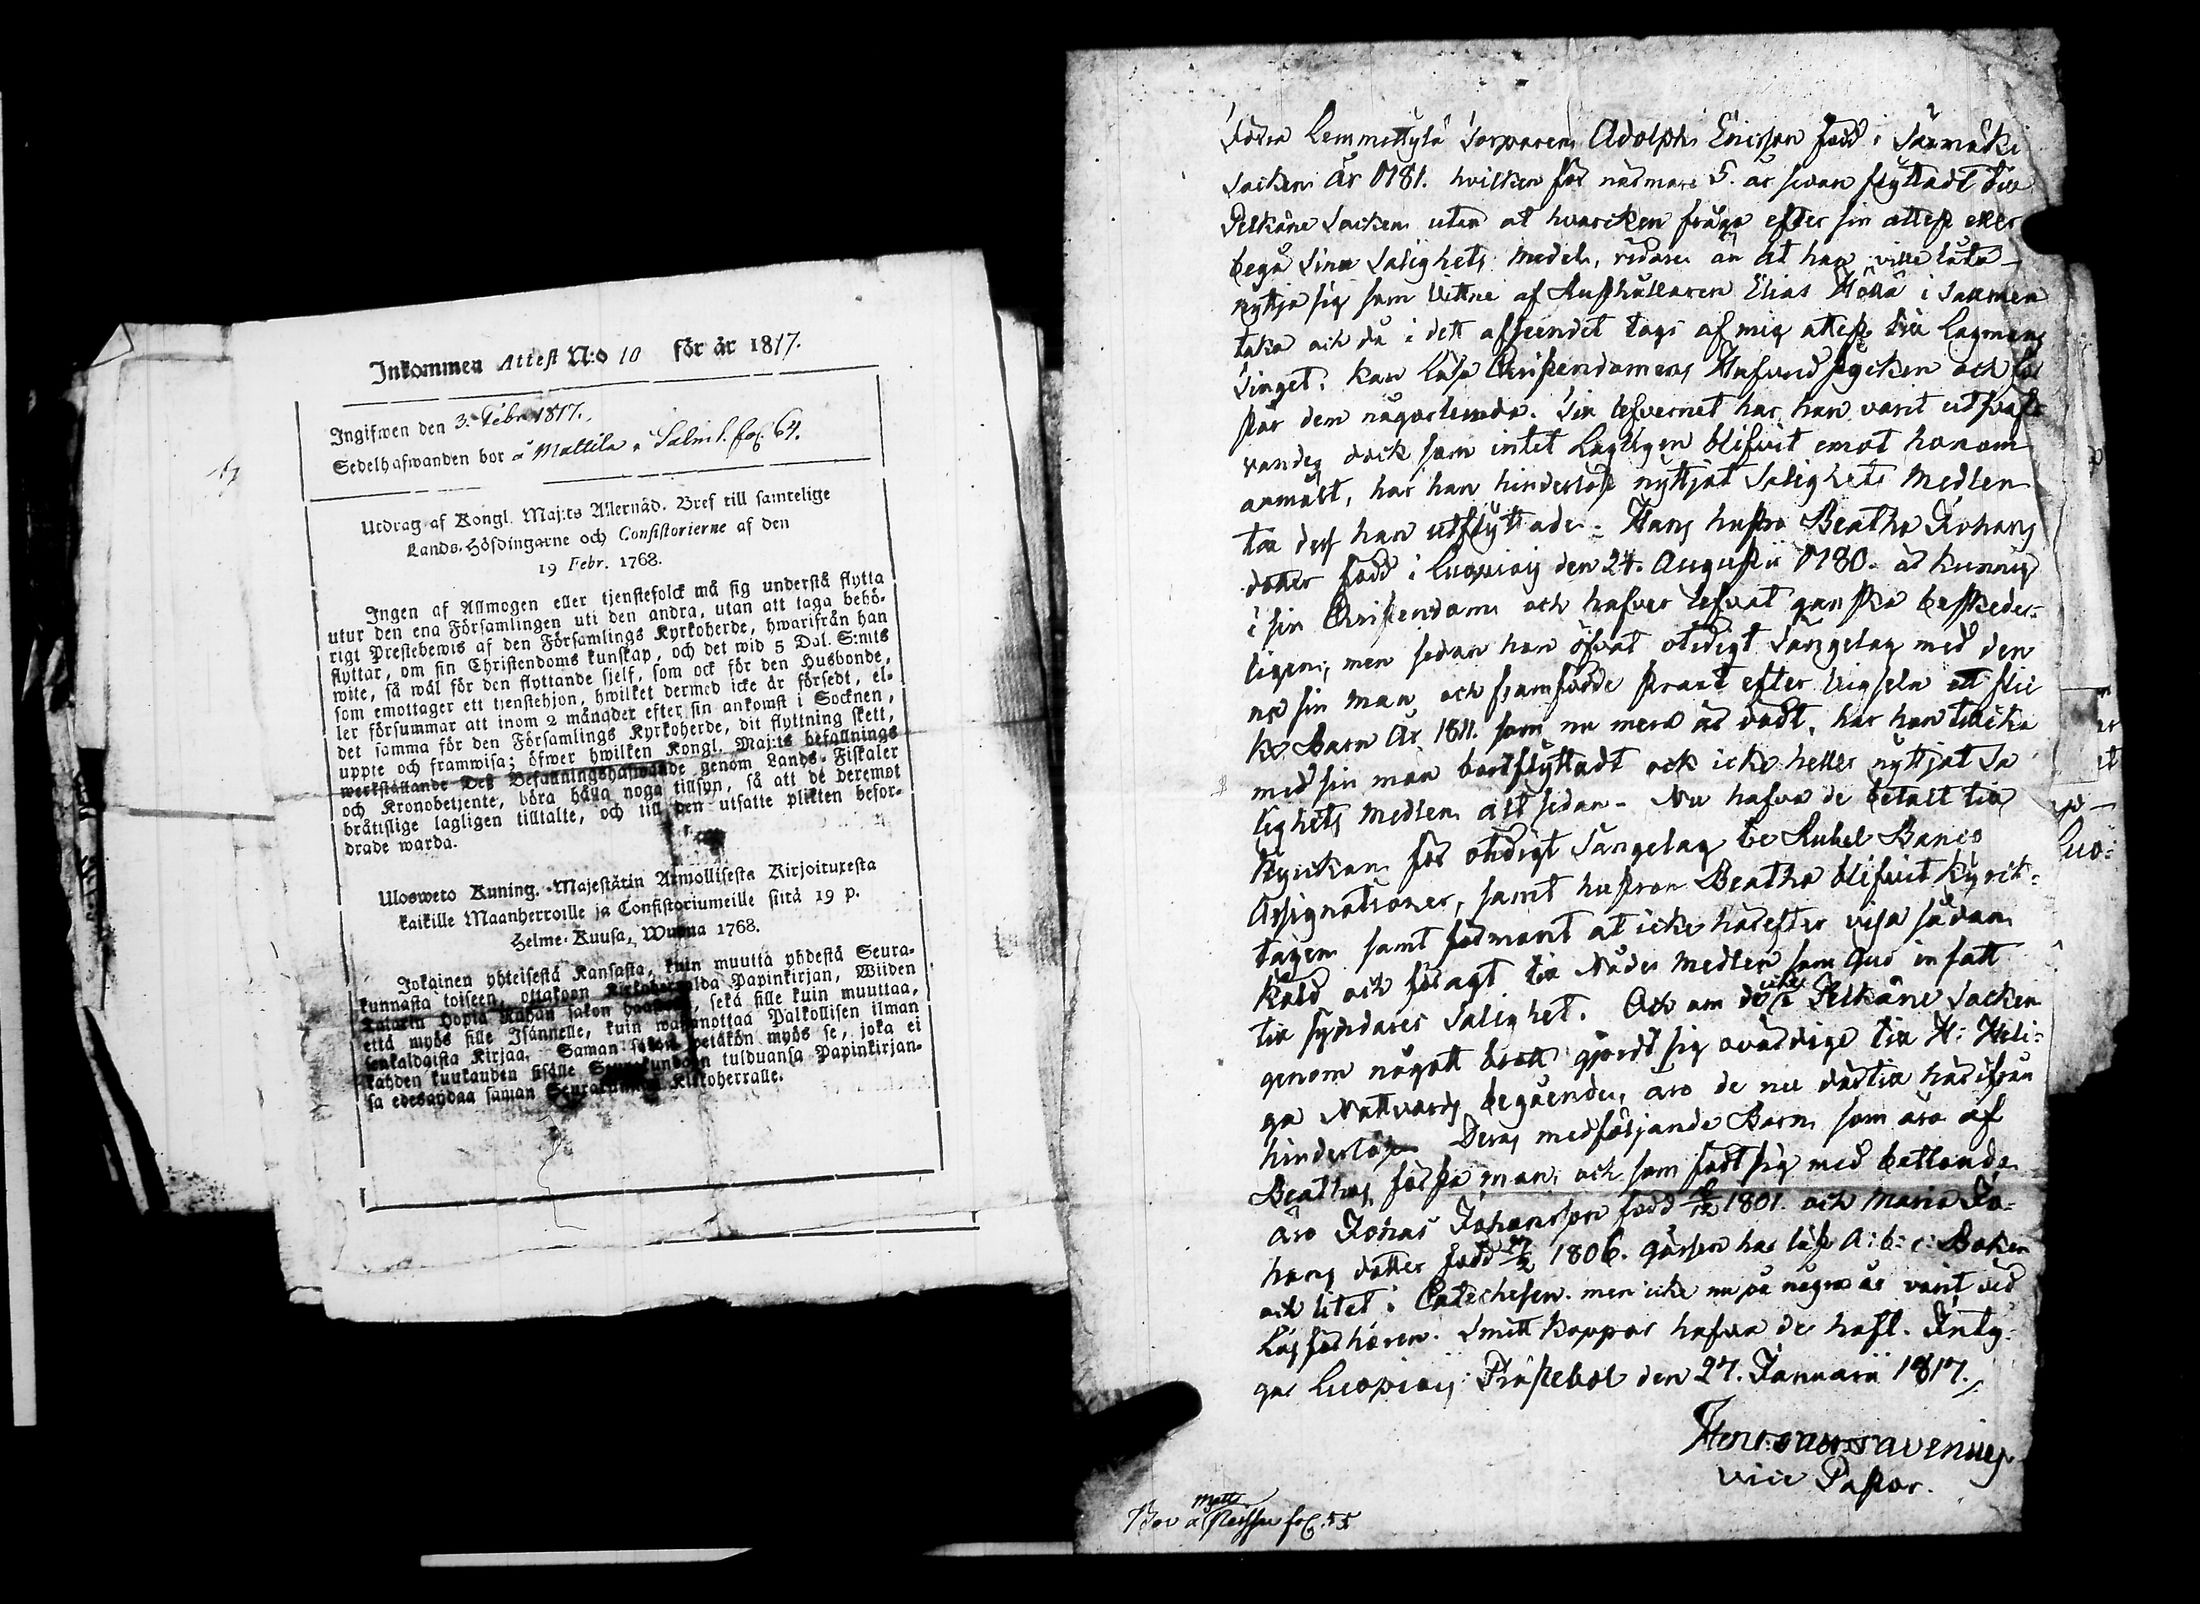 Inkommen Attest N:o 10 för år 1817.
Ingifwen den 3. Febr. 1817.
Sedelhafwanden bor å Mattila i Salml. fol. 64.
Utdrag af Kongl. Maj:ts Allernåd. Bref till samtelige
Lands-Höfdingarne och Consistorierne af den
19 Febr. 1768.
Ingen af Allmogen eller tjenstefolck må sig understå flytta
utur den ena Församlingen uti den andra, utan att taga behö-
rigt Prestebewis af den Församlings Kyrkoherde, hwarifrån han
flyttar, om sin Christendoms kunskap, och det wid 5 Dal. S:mts
wite, så wäl för den flyttande sjelf, som ock för den Husbonde,
som emottager ett tjenstehjon, hwilket dermed icke är försedt, el-
ler försummar att inom 2 månader efter sin ankomst i Socknen,
det samma för den Församlings Kyrkoherde, dit flyttning skett,
uppte och framwisa; öfwer hwilken Kongl. Maj:ts befallnings
werkställande Deß Befallningshafwande genom Lands-Fiskaler
och Kronobetjente, böra hålla noga tillsyn, så att de deremot
bråtislige lagligen tilltalte, och till den utsatte plikten befor-
drade warda.
Ulosweto Kuning. Majestätin Armollisesta Kirjoituxesta
kaikille Maanherroille ja Consistoriumeille siitä 19 p.
Helme-Kuusa, Wuona 1768.
Jokainen yhteisestä Kansasta, kuin muutta yhdestä Seura-
kunnasta toiseen, ottakoon Kirkoherralda Papinkirjan, Wiiden
Talarin Hopia Rahan sakon haastolla, sekä sille kuin muuttaa,
että myös sille Isännelle, kuin wastanottaa Palkollisen ilman
senkaldaista Kirjaa. Saman sakon wetäkön myös se, joka ei
kahden kuukauden sisälle Seurakundaan tulduansa Papinkirjan-
sa edesandaa saman Seurakunnan Kirkoherralle.
Förra Lemmettylä Torparen Adolph Ericsson född i Sääxmäki
Socken År 1781. hvilken för närmare 5. år sedan flyttadt till
Pelkäne Socken utan at hvarcken fråga efter sin attest eller
begå sina Salighets medel, vidare än at han ville låta
nyttja sig som Vittne af Rusthållaren Elias Höllä i
taka och då i dett afseendet tagi af mig attest till Lagmans
Tinget. kan läsa Christendomens Hufvud stycken och för
står dem någorlunda. Till lefvernet har han varit utsväf-
vandes dock som intet Lagligen blifvit emot honom
anmält, har han hinderlöst nyttjat Salighets Medlen
till dess han utflyttade. Hans hustro Beatha Johans
dotter född i Luopiois den 24. Augusti 1780. är kunnig
i sin Christendom och hafver lefvat ganska beskeder-
ligen, men sedan hon öfvat otidigt Sängelag med den
na sin man och framfödde straxt efter vigseln ett flic
ke Barn År 1811. som nu mera är dödt, har hon tillika
med sin man bortflyttadt och icke heller nyttjat Sa
lighets Medlen alt sedan. Nu hafva de betalt till
Kyrckan för otidigt Sängelag Rubel Banco
Assignationer, samt hustron Beatha blifvit Kyrck-
tagen samt förmant at icke härefter visa sådan
köld och föragt till Nådes Medlen som Gud insatt
till syndares Salighet. Och om de icke i Pelkäne Socken
genom något brott gjordt sig ovärdige till H: Heli-
ga Nattvards begående, äro de nu därtill härifrån
hinderlöse. Deras medföljande Barn som äro af
Beathas första man och som födt sig med betlande
äro Jonas Johansson född 1801. och Maria Jo-
hans dotter född 1806. gåssen har läst A:b:c: Boken
och litet i Catechesen. men icke nu på några år varit vid
Läs förhören. Smitt koppor hafva de haft. Inty-
gar Luopiois Prästebol den 27. Januarii 1817.
vice Pastor.
Bor å
Matts
fol. 55